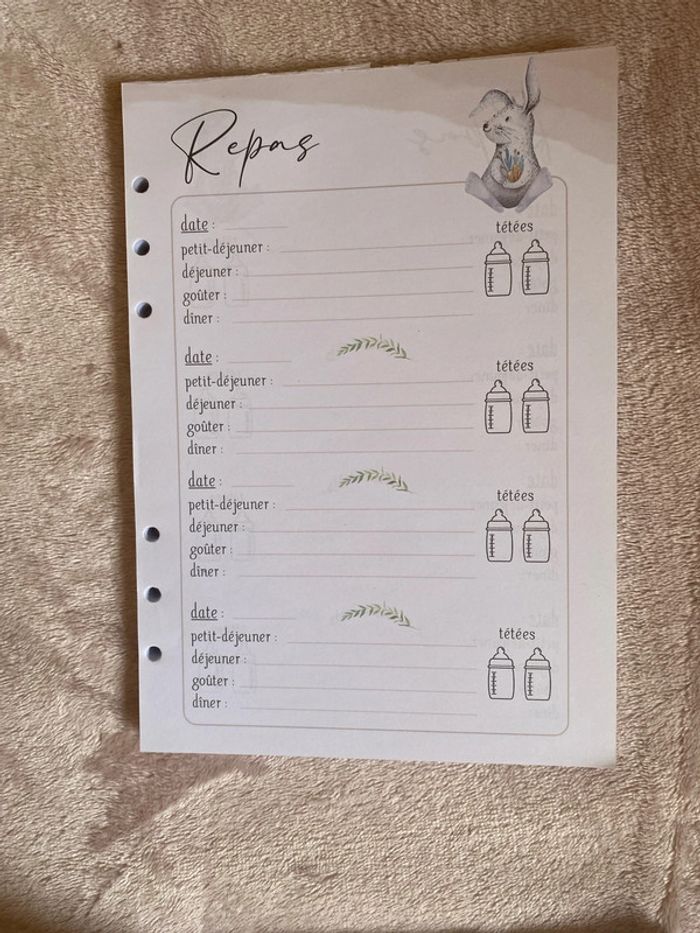 Repas
date :
tétées
petit-déjeuner :
déjeuner :
goûter :
dîner :
date :
tétées
petit-déjeuner :
déjeuner :
goûter :
dîner :
date :
tétées
petit-déjeuner :
déjeuner :
goûter :
dîner :
date :
tétées
petit-déjeuner :
déjeuner :
goûter :
dîner :